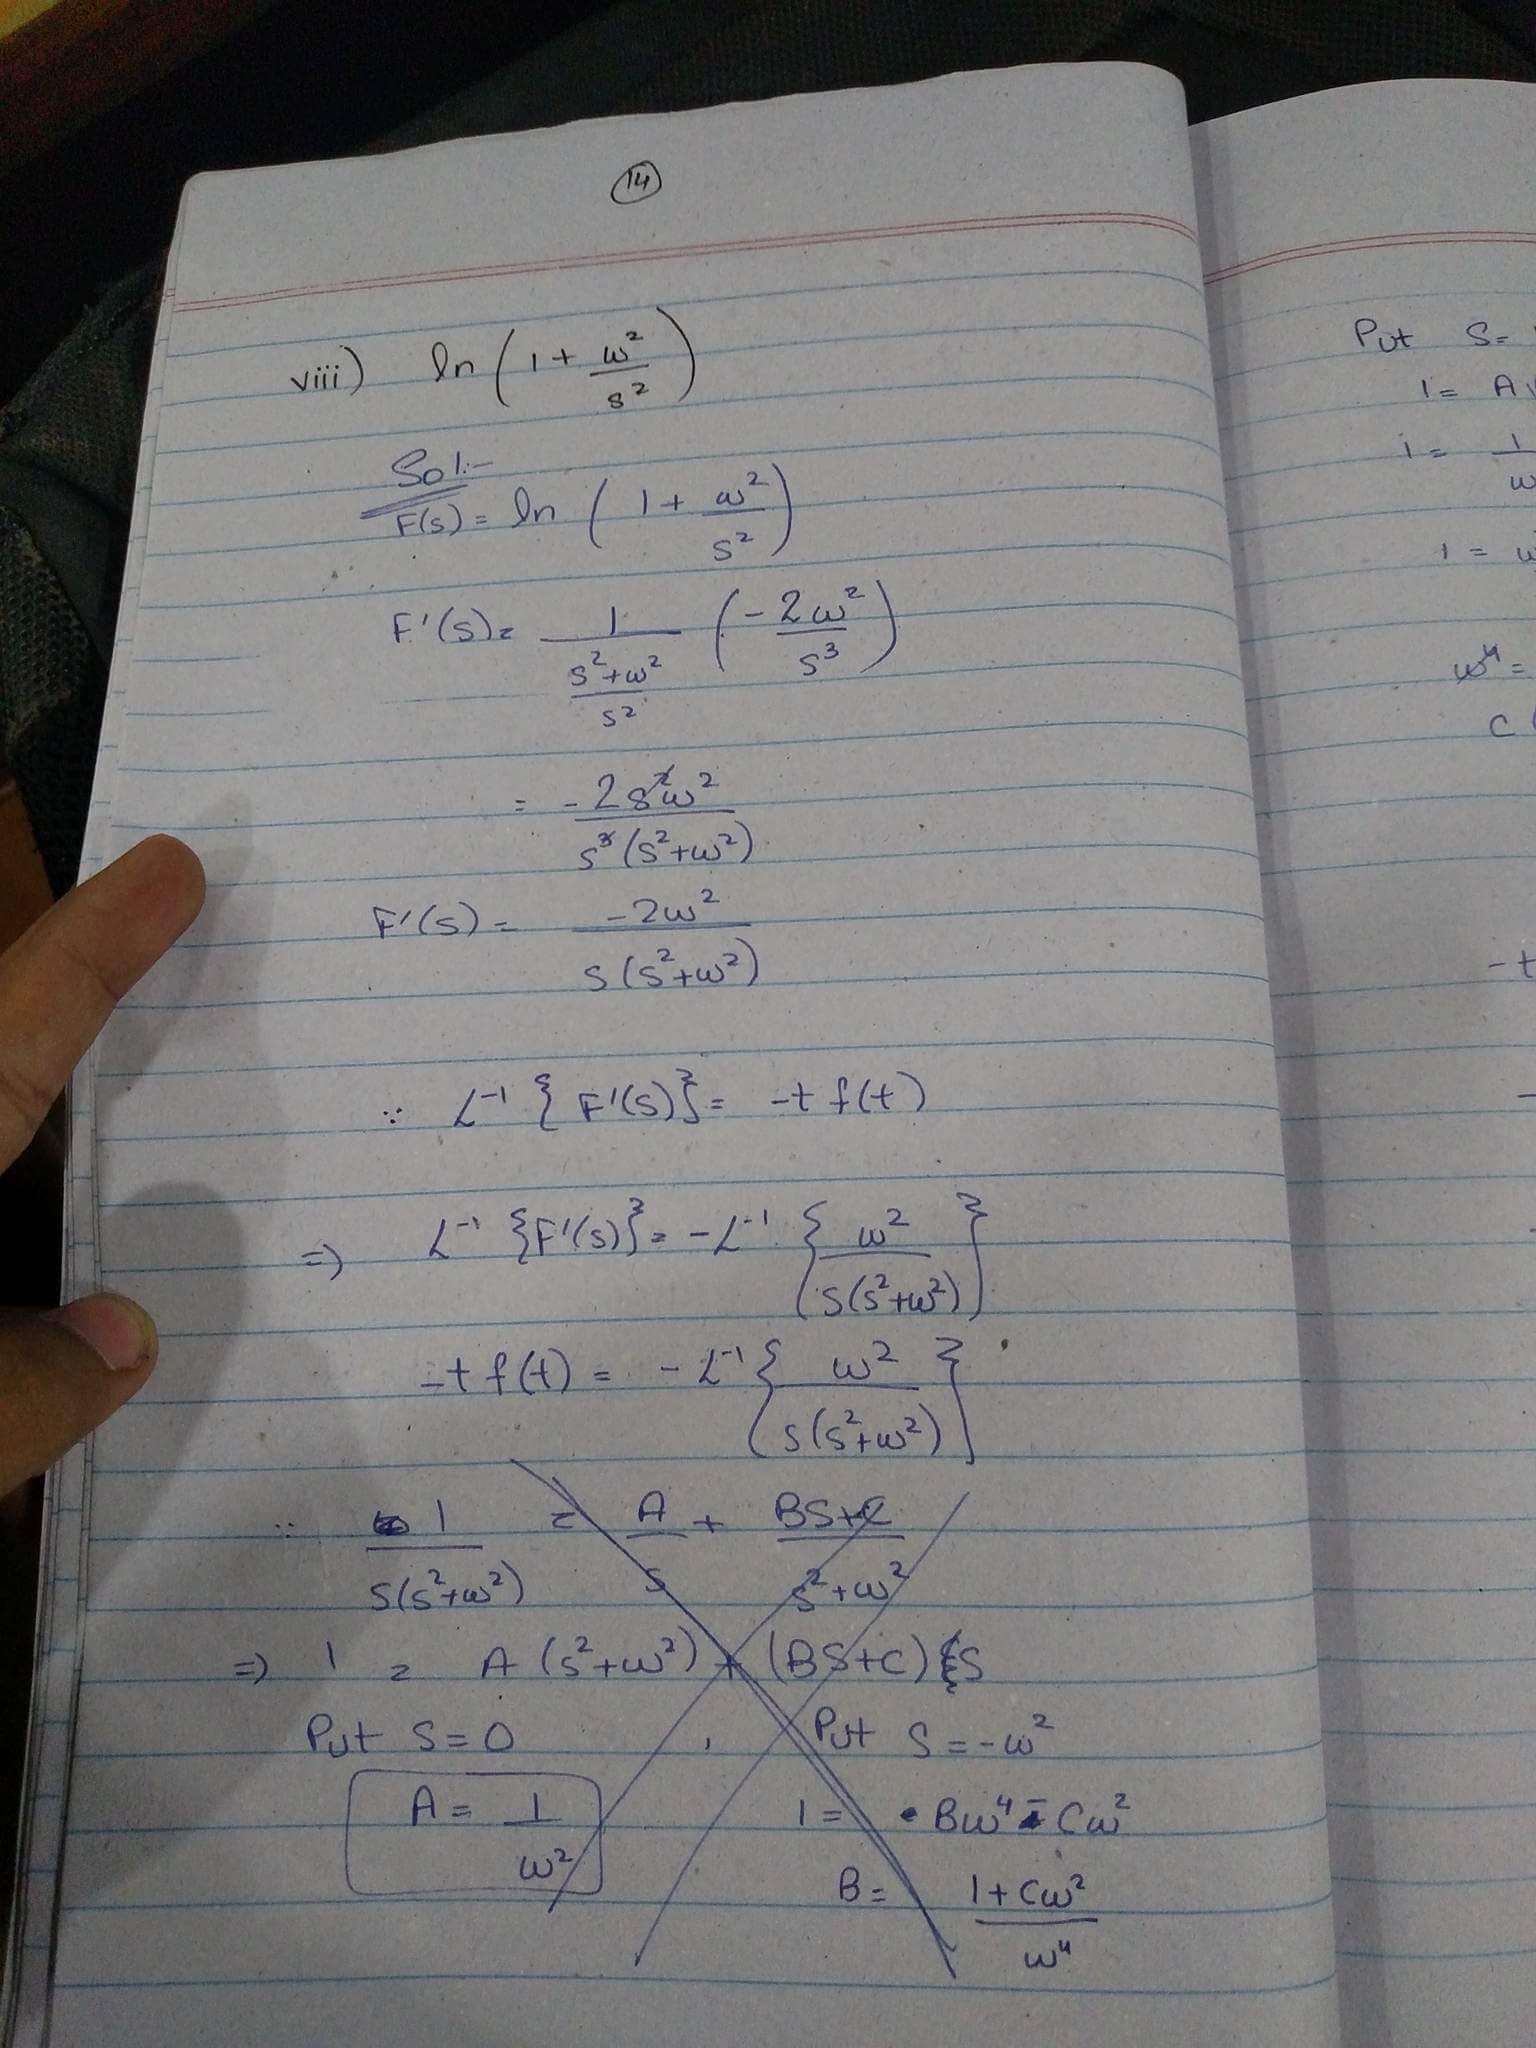 14
viii) ln(1 + ω²/s²)
Sol:-
F(s) = ln(1 + ω²/s²)
F'(s) = 1/((s²+ω²)/s²) (-2ω²/s³)
= -2s²ω²/(s³(s²+ω²))
F'(s) = -2ω²/(s(s²+ω²))
∵ L⁻¹{F'(s)} = -t f(t)
=> L⁻¹{F'(s)} = -L⁻¹{ω²/(s(s²+ω²))}
-t f(t) = -L⁻¹{ω²/(s(s²+ω²))}
∵ 1/(s(s²+ω²)) = A/s + (Bs+C)/(s²+ω²)
=> 1 = A(s²+ω²) + (Bs+C)s
Put s=0 , Put s=-ω²
A = 1/ω² 1 = Bω⁴ - Cω²
B = (1+Cω²)/ω⁴
Put s=
1=
1=
1=
ω⁴=
C
-t